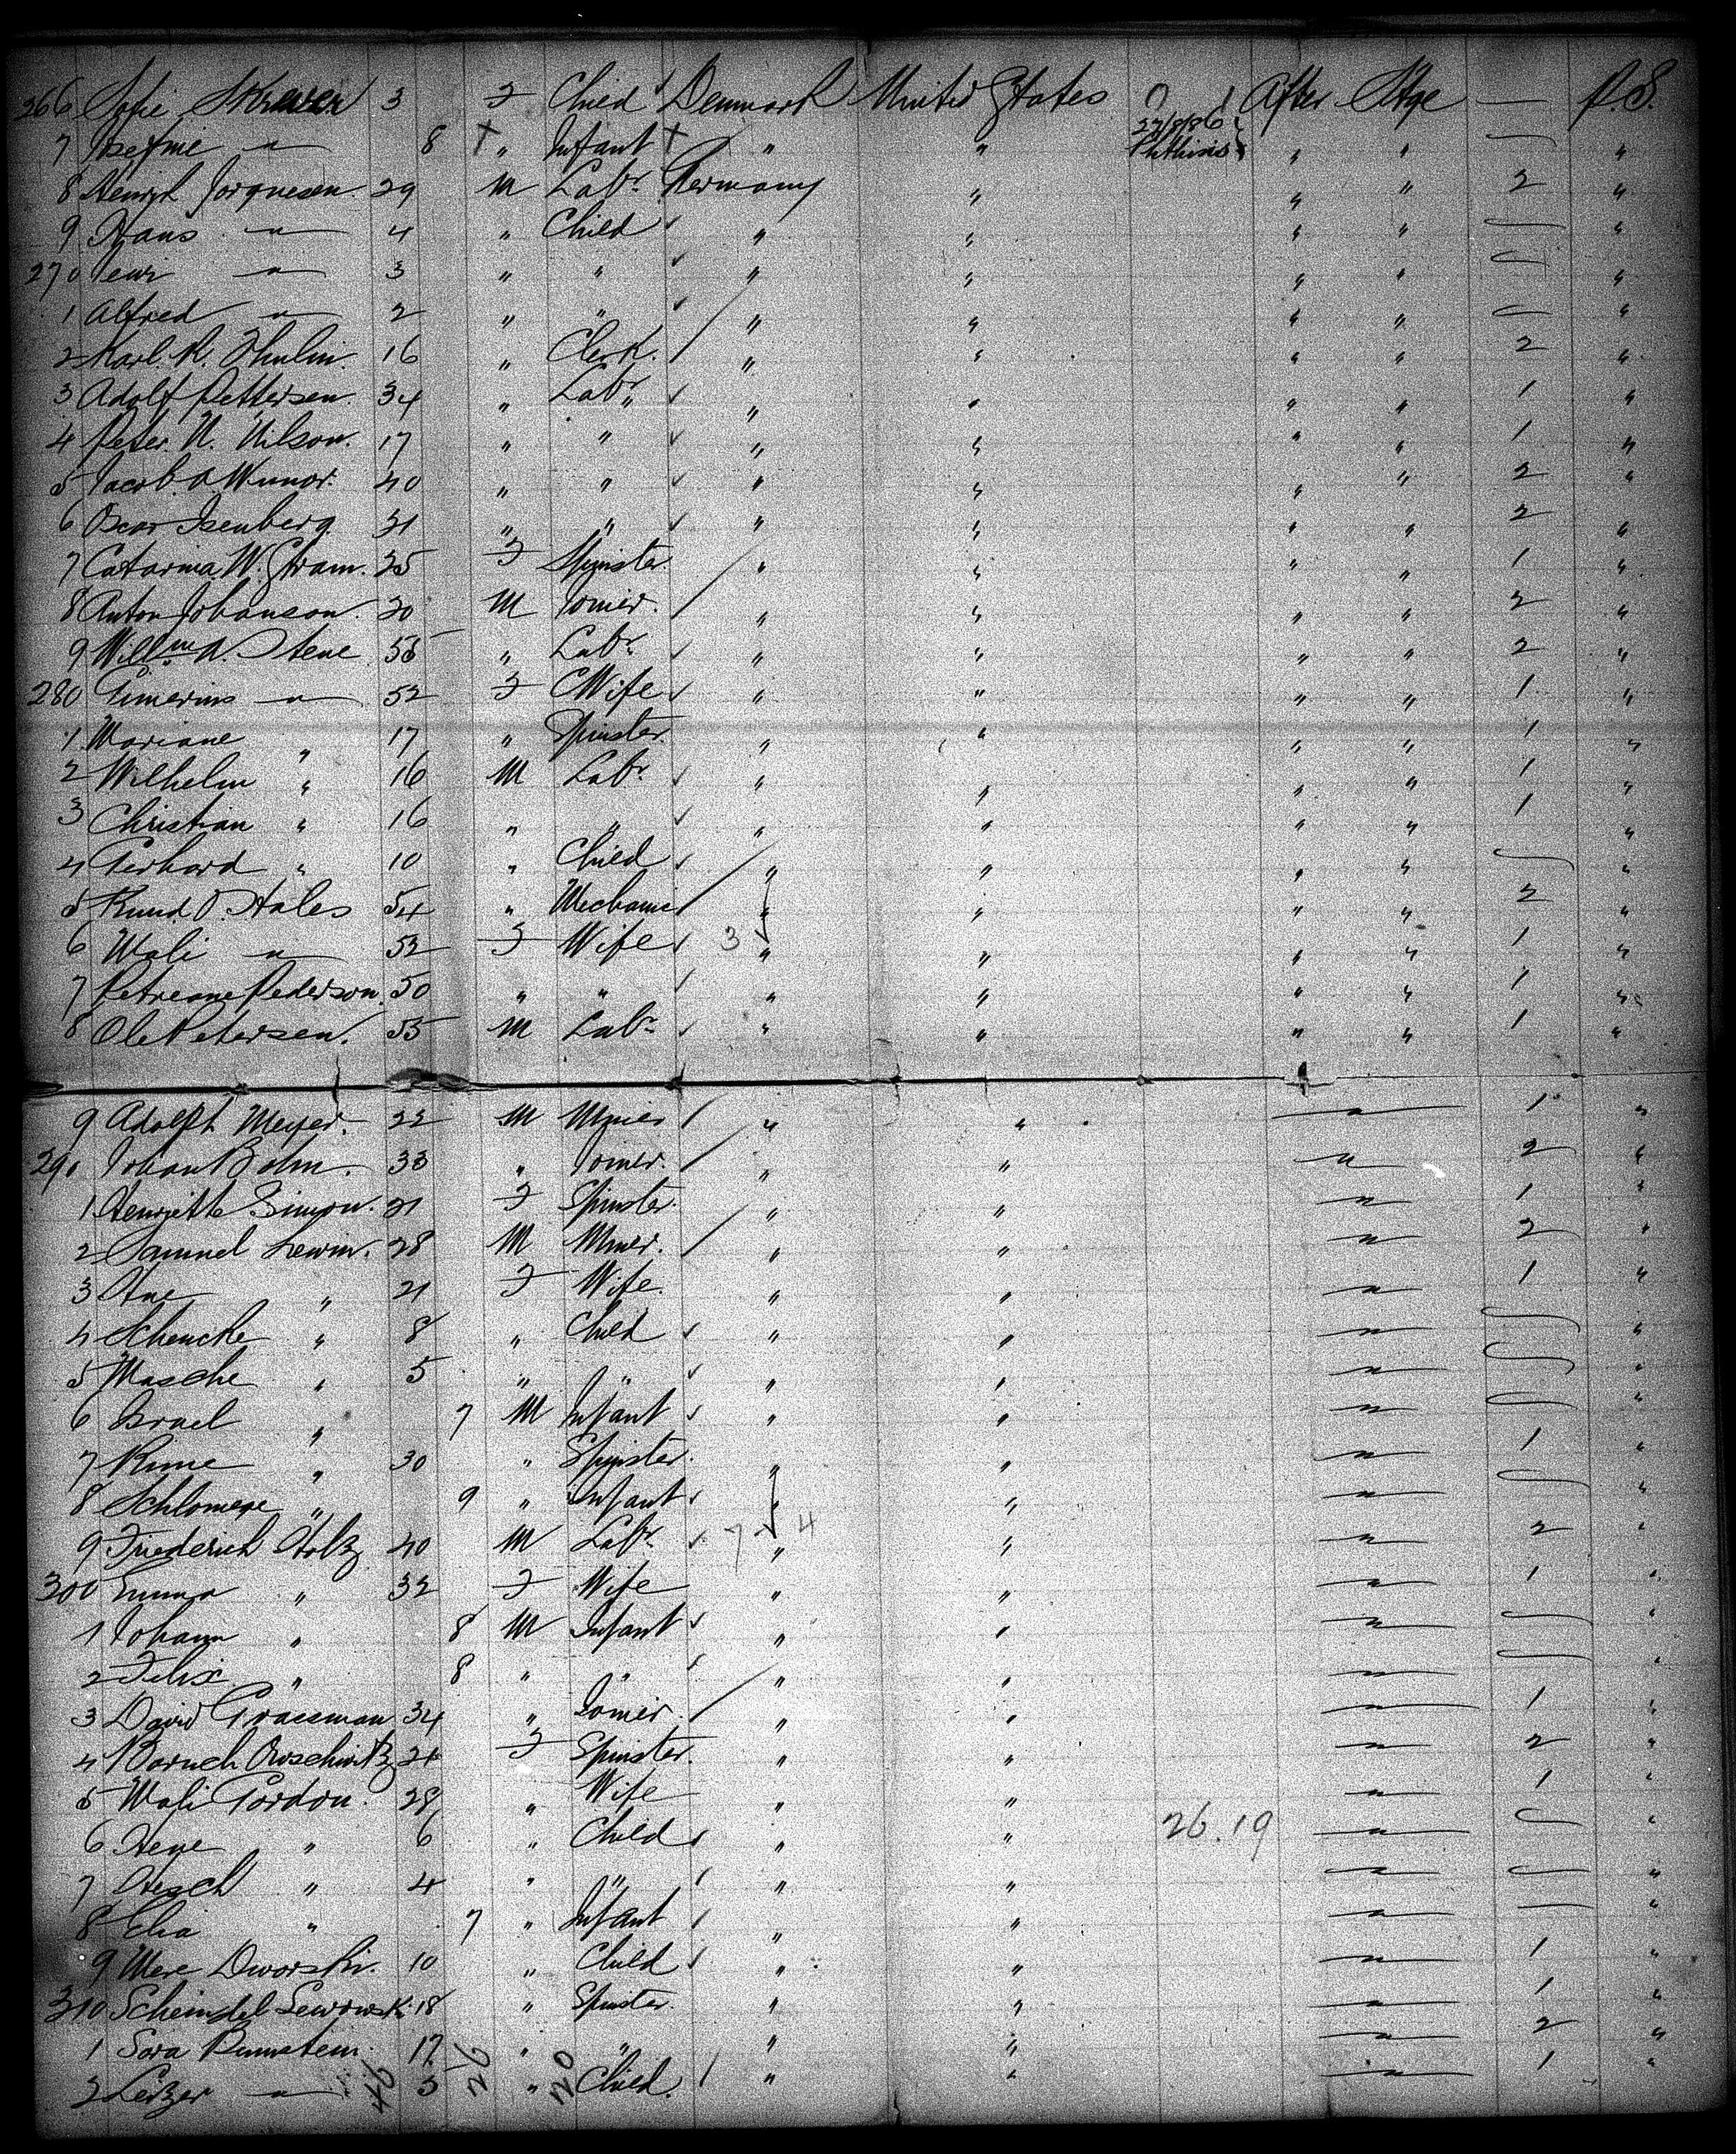 266 Sofie 3 F Child Denmark United States After Stge — P.S.
27/8/86
7 " 8 † " Infant † " " Phthisis " " — "
8 29 M Labr Germany " " " 2 "
9 Hans " 4 " Child ✓ " " " " — "
270 " 3 " " ✓ " " " " — "
1 Alfred " 2 " " ✓ " " " " — "
2 Karl. R. 16 " Clerk. / " " " " 2 "
3 Adolf Pettersen. 34 " Labr ✓ " " " " 1 "
4 Peter N. Nilson. 17 " " ✓ " " " " 1 "
5 Jacob. A. 40 " " ✓ " " " " 2 "
6 Oscar Isenberg. 31 " " ✓ " " " " 2 "
7 Catarina W. 25 F Spinster. / " " " " 1 "
8 Anton Johanson. 30 M Joiner. / " " " " 2 "
9 Willm A. Stene 55 " Labr ✓ " " " " 2 "
280 " 52 F Wife ✓ " " " " 1 "
1 Mariane " 17 " Spinster. " " " " 1 "
2 Wilhelm " 16 M Labr ✓ " " " " 1 "
3 Christian " 16 " " ✓ " " " " 1 "
4 Gerhard " 10 " Child ✓ " " " " — "
5 Knud O. Hales 54 " Mechanic / " " " " 2 "
6 Wali " 52 F Wife ✓ 3 ✓ " " " " 1 "
7 Petreane Pederson. 50 " " ✓ " " " " 1 "
8 Ole Petersen. 55 M Labr ✓ " " " " 1 "
9 Adolph Meyer. 22 M / " " " 1 "
290 Johan Bohn. 33 " Joiner. / " " " 2 "
1 Henriette Simon. 21 F Spinster. / " " " 1 "
2 Samuel Lewin. 28 M Miner. / " " " 2 "
3 " 21 F Wife. " " " 1 "
4 Schencke " 8 " Child ✓ " " " — "
5 Masche " 5 " " ✓ " " " — "
6 Israel " 7 M Infant ✓ " " " — "
7 Rime " 30 " Spinster. " " " 1 "
8 " 9 " Infant ✓ " " " — "
9 Friederich Holz 40 M Labr ✓ 7 ✓ 4 " " " 2 "
300 Emma " 32 F Wife " " " 1 "
1 Johann " 8 M Infant ✓ " " " — "
2 Felix " 8 " " ✓ " " " — "
3 David Grassman 34 " Joiner. / " " " 1 "
4 Baruch 21 F Spinster. " " " 2 "
5 Wali Gordon. 28 " Wife " " " 1 "
6 " 6 " Child ✓ " " 26.19 " — "
7 Hesch " 4 " " ✓ " " " — "
8 Elia " 7 " Infant ✓ " " " — "
9 Mere Dworski. 10 " Child ✓ " " " 1 "
310 Scheindel 18 " Spinster. " " " 1 "
1 Sora 17 " " " " " 2 "
2 Leizer " 5 " Child. / " " " 1 "
46 26 20